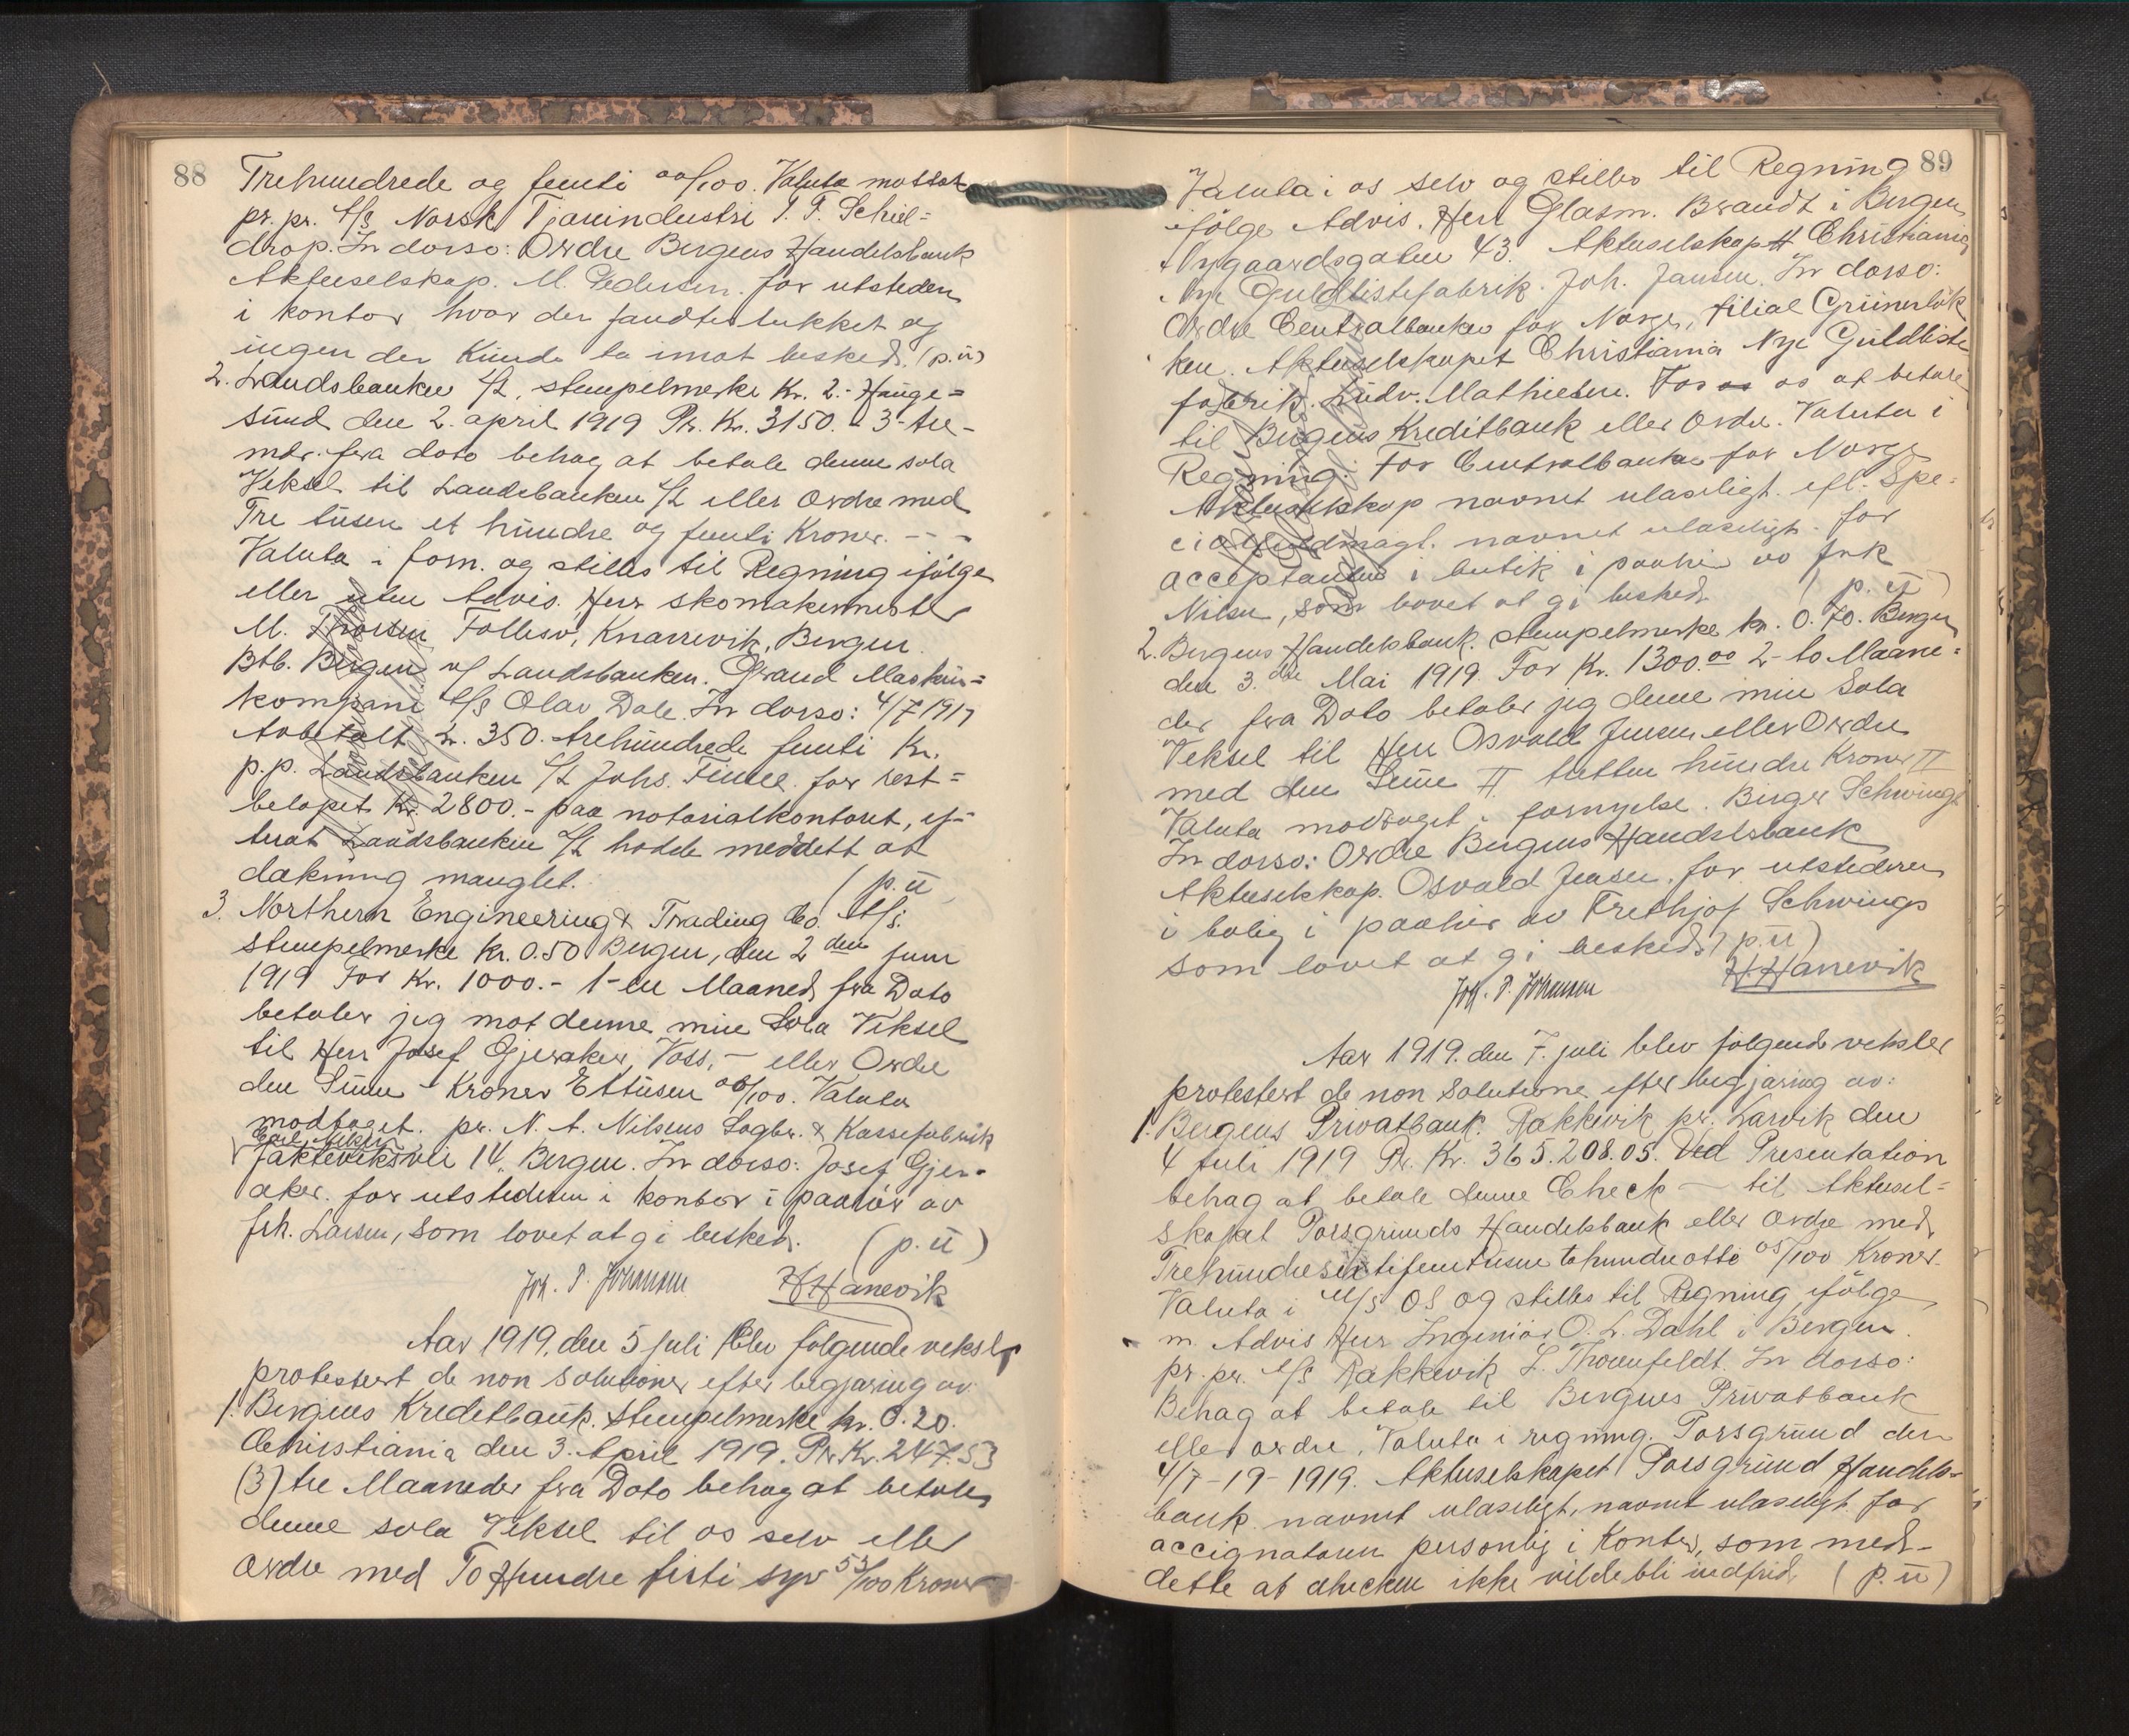 88
Trehundrede og femti 00/100. Valuta mottat
pr. pr. A/S Norsk Tjæreindustri T. F. Schiel=
drop. In dorso: Ordre Bergens Handelsbank
Aktieselskap. M. Pedersen. for utstederen
i kontor hvor der fandtes lukket og
ingen der kunde ta imot besked. (p. u)
2. Landsbanken A/L, stempelmerke Kr. 2.- Hauge=
sund den 2. april 1919 Pr. Kr. 3150. - 3-tre-
mdr. fra dato behag at betale denne sola
Veksel til Landsbanken A/L eller Ordre med
Tre tusen et hundre og femti Kroner. - - -
Valuta i forn. og stilles til Regning ifølge
eller uten Advis. Herr skomakermester
M. Follesø, Knarrevik, Bergen.
Btb. Bergen af Landsbanken. Brand Maskin=
kompani A/S Olav Dale. In dorso: 4/7 1919
Avbetalt kr. 350. trehundrede femti Kr.
p.p. Landsbanken A/L Johs. for rest=
beløpet Kr. 2800.- paa notarialkontoret, ef-
terat Landsbanken A/L hadde meddelt at
dækning manglet. (p. u
3. Northern Engineering & Trading Co. A/S.
stempelmerke kr. 0.50 Bergen, den 2 den juni
1919 For Kr. 1000.- 1-en Maaned fra Dato
betaler jeg mot denne min Sola Veksel
til Herr Josef Gjeraker, Voss, - eller Ordre
den Sum - Kroner Ettusen 00/100. Valuta
modtaget. pr. N. A. Nilsens Sagbr. & Kassefabrik
Nilsen
Jækteviksvei 14, Bergen. In dorso: Josef Gjer-
aker. for utstederen i kontor i paahør av
frk. Larsen, som lovet at gi besked. (p. u)
Joh. P. Johansen H Hanevik
Aar 1919, den 5 juli blev følgende veksler
protestert de non solutione efter begjæring av
1. Bergens Kreditbank. Stempelmerke kr. 0.20.
Christiania den 3. April 1919. Pr. Kr. 247.53
(3) tre Maaneder fra Dato behag at betale
denne sola Veksel til os selv eller
Ordre med To Hundre firti syv 53/100 Kroner
89
Valuta i os selv og stilles til Regning
ifølge Advis. Herr Glasm. Brandt i Bergen
Nygaardsgaten 43. Aktieselskapet Christiania
Nye Guldlistefabrik. Joh. Jansen. In dorso:
Ordre Centralbanken for Norge, filial Grünerløk
ken. Aktieselskapet Christiania Nye Guldliste
fabrik. Ludv. Mathiesen. For os at betale
til Bergens Kreditbank eller Ordre. Valuta i
Regning. For Centralbanken for Norge
Aktieselskap navnet ulæseligt. efl. Spe=
cialfuldmagt. navnet ulæseligt. for
acceptanten i butik i paahør av frk
Nilsen, som lovet at gi besked. (p. u)
2. Bergens Handelsbank. stempelmerke kr. 0.70. Bergen
den 3. die Mai 1919. For Kr. 1300.00 2-to Maane=
der fra Dato betaler jeg denne min Sola
Veksel til Herr Osvald Jensen eller Ordre
med den Sum II tretten hundre Kroner II
Valuta modtaget i fornyelse. Birger Schwings
In dorso: Ordre Bergens Handelsbank
Aktieselskap. Osvald Jensen. for utstederen
i bolig i paahør av Frithjof Schwings
som lovet at gi besked. (p. u)
Joh. P. Johansen H Hanevik
Aar 1919. den 7. juli blev følgende veksler
protestert de non solutione efter begjæring av:
1. Bergens Privatbank. Rakkevik pr. Larvik den
4 Juli 1919 Pr. Kr. 365.208.05. Ved Presentation
behag at betale denne Check - til Aktiesel=
skapet Porsgrunds Handelsbank eller ordre med
Trehundresekstifemtusen tohundreotte 05/100 Kroner.
Valuta i OS og stilles til Regning ifølge
m. Advis Herr Ingeniør O. L. Dahl i Bergen.
pr. pr. A/S Rakkevik L. Thorenfeldt. In dorso:
Behag at betale til Bergens Privatbank
eller ordre, Valuta i regning. Porsgrund den
4/7-19-1919. Aktieselskapet Porsgrund Handels=
bank navnet ulæseligt, navnet ulæseligt for
accignatoren personlig i Kontor, som med-
delte at checken ikke vilde bli indfrid (p. u)